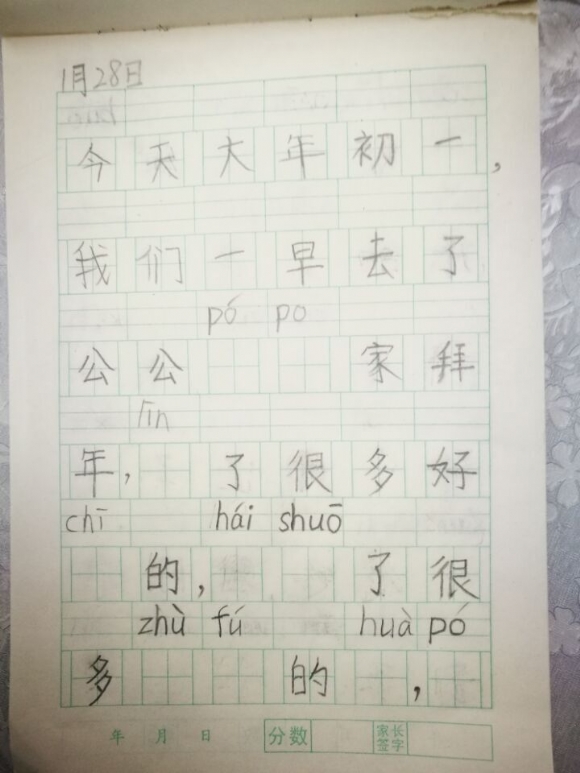 1月28日
今天大年初一，
我们一早去了
pó po
公公 家拜
lin
年， 了很多好
chī hái shuō
的， 了很
zhù fú huà pó
多 的 ，
年 月 日 分数 家长签字